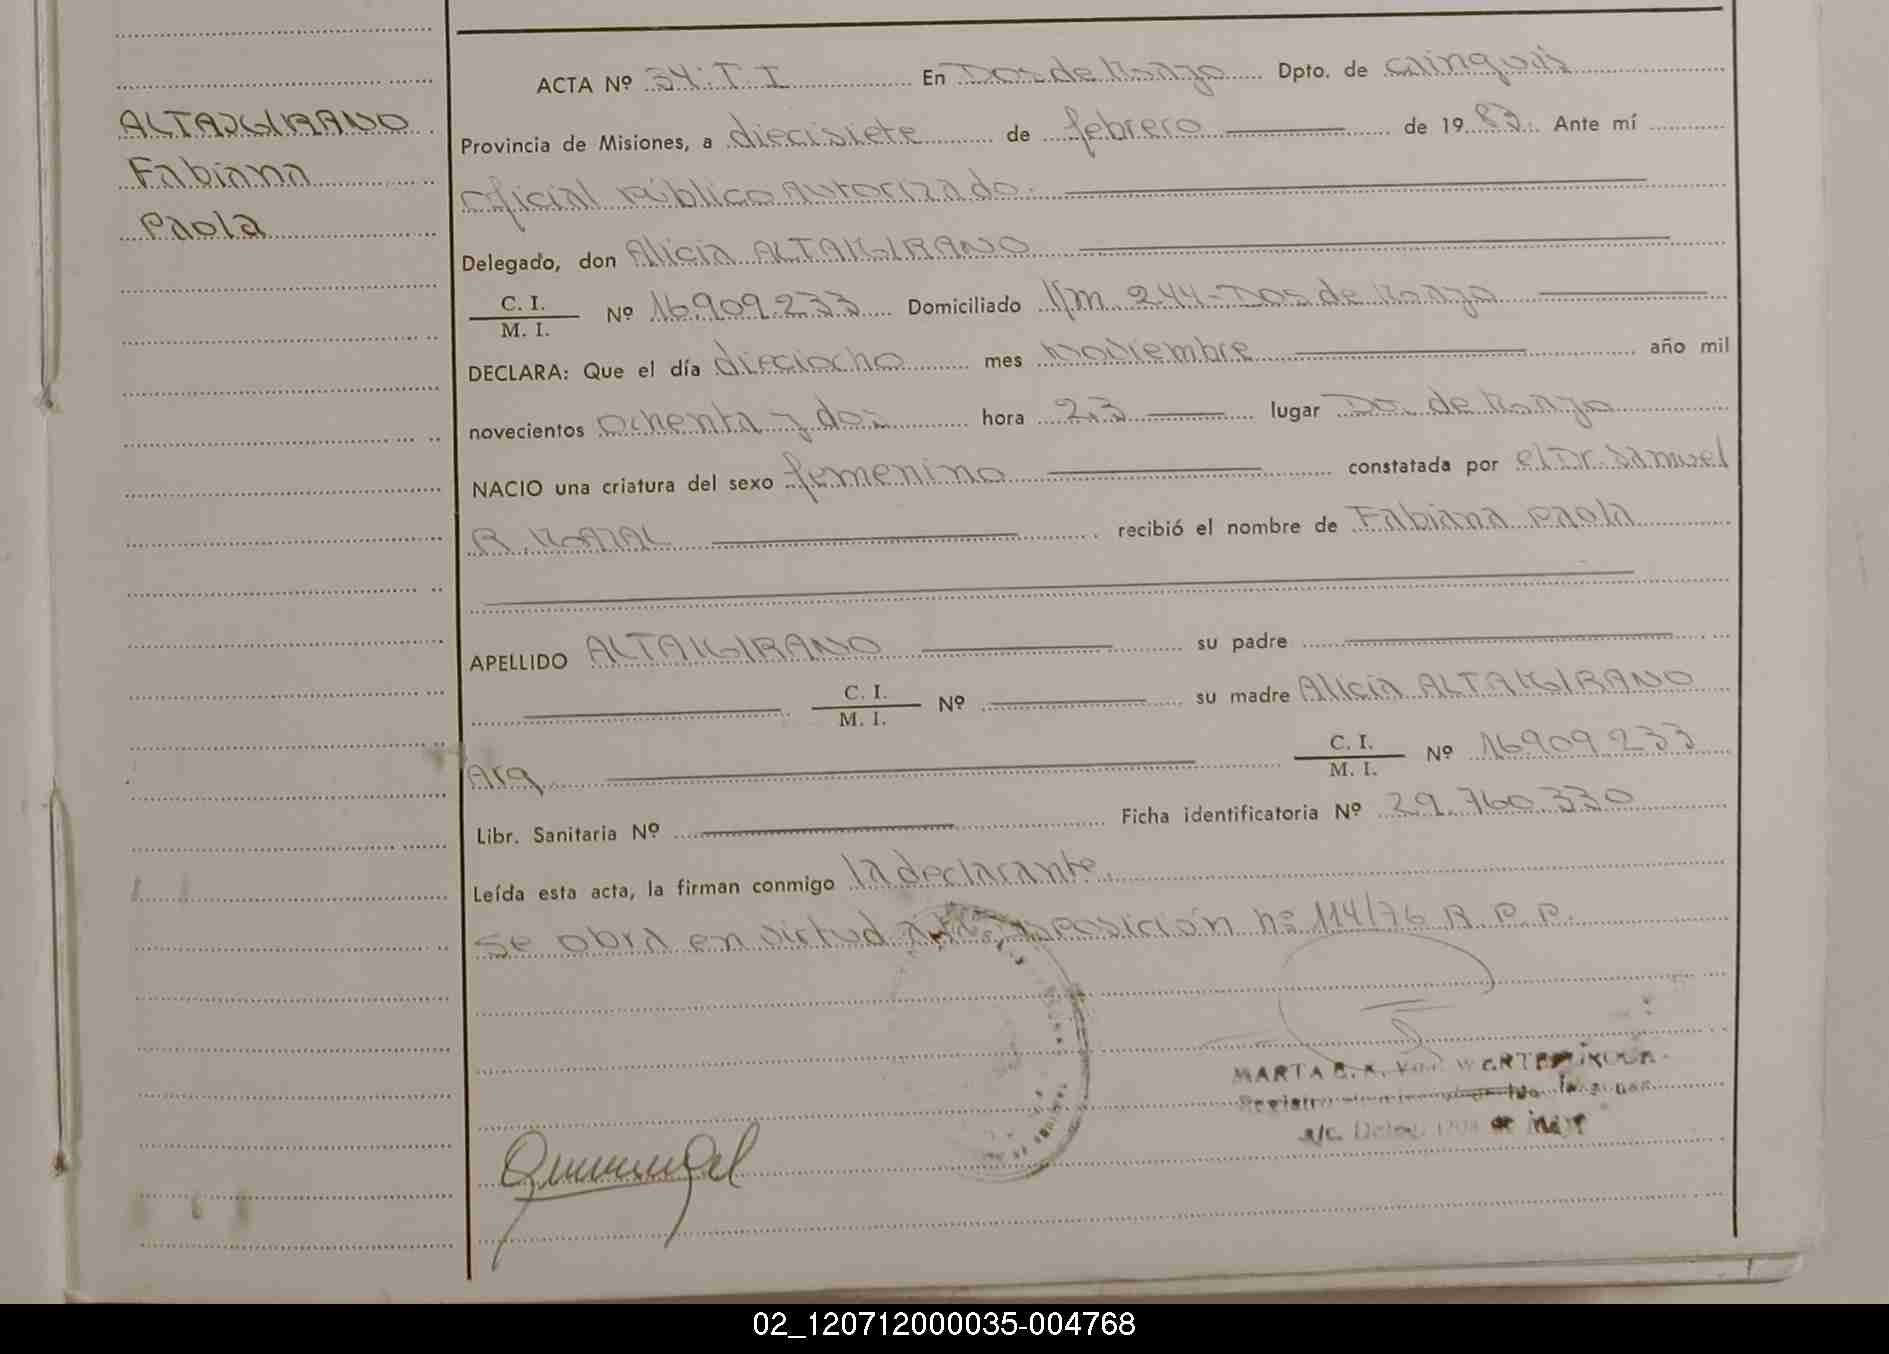 ALTAMIRANO
Fabiana
Paola
ACTA Nº 34. T. I En Dos de Mayo Dpto. de Cainguás
Provincia de Misiones, a diecisiete de febrero de 1983. Ante mí
Oficial Público autorizado.
Delegado, don Alicia ALTAMIRANO
C. I.
M. I.
Nº 16.909.233 Domiciliado Km 244 - Dos de Mayo
DECLARA: Que el día dieciocho mes Noviembre año mil
novecientos ochenta y dos hora 23 lugar Dos de Mayo
NACIO una criatura del sexo femenino constatada por el Dr. Samuel
R. recibió el nombre de Fabiana Paola
APELLIDO ALTAMIRANO su padre
C. I.
M. I.
Nº su madre Alicia ALTAMIRANO
Arg. C. I.
M. I.
Nº 16909233
Libr. Sanitaria Nº Ficha identificatoria Nº 29.760.330
Leída esta acta, la firman conmigo la declarante.
Se obra en virtud disposición nº 114/76 R. P. P.
MARTA
02_120712000035-004768